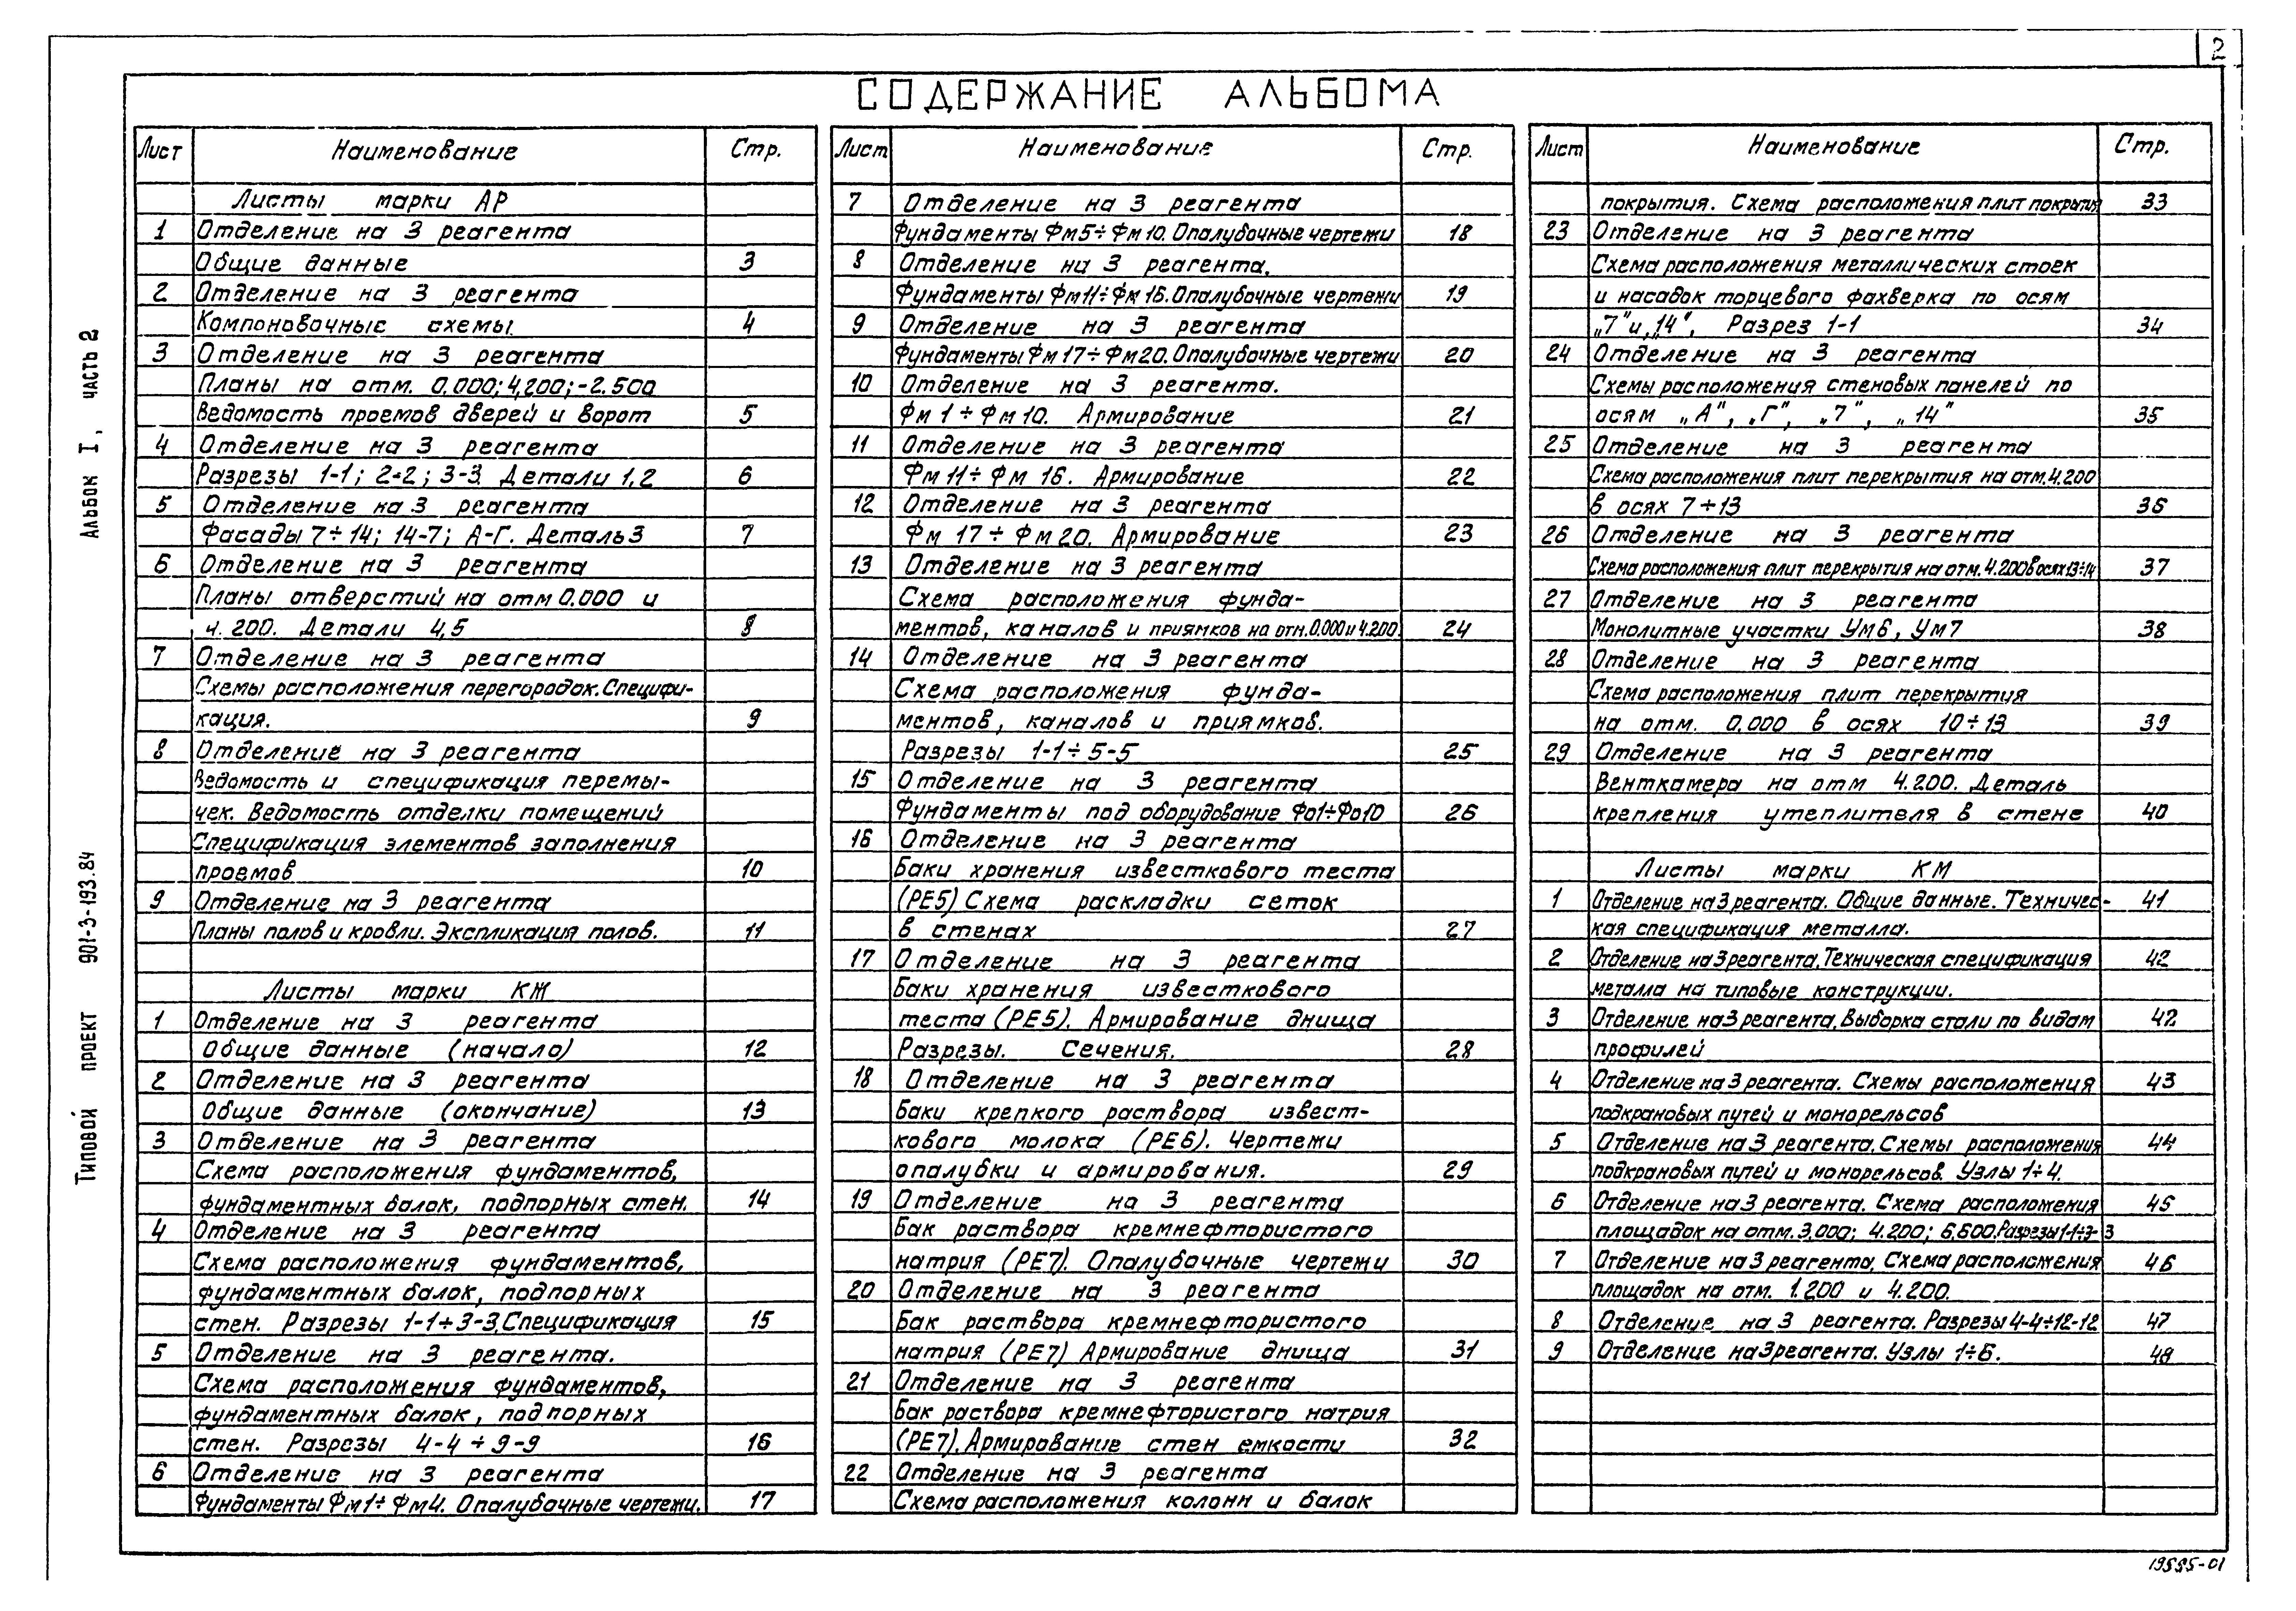 2
СОДЕРЖАНИЕ АЛЬБОМА
Альбом I, часть 2
Типовой проект 901-3-193.84
Лист Наименование Стр.
Листы марки АР
1 Отделение на 3 реагента
Общие данные 3
2 Отделение на 3 реагента
Компоновочные схемы. 4
3 Отделение на 3 реагента
Планы на отм. 0.000; 4,200; -2.500
Ведомость проемов дверей и ворот 5
4 Отделение на 3 реагента
Разрезы 1-1; 2-2; 3-3. Детали 1,2 6
5 Отделение на 3 реагента
Фасады 7÷14; 14-7; А-Г. Деталь 3 7
6 Отделение на 3 реагента
Планы отверстий на отм 0.000 и
4.200. Детали 4,5 8
7 Отделение на 3 реагента
Схемы расположения перегородок. Специфи-
кация. 9
8 Отделение на 3 реагента
Ведомость и спецификация перемы-
чек. Ведомость отделки помещений
Спецификация элементов заполнения
проемов 10
9 Отделение на 3 реагента
Планы полов и кровли. Экспликация полов. 11
Листы марки КЖ
1 Отделение на 3 реагента
Общие данные (начало) 12
2 Отделение на 3 реагента
Общие данные (окончание) 13
3 Отделение на 3 реагента
Схема расположения фундаментов,
фундаментных балок, подпорных стен. 14
4 Отделение на 3 реагента
Схема расположения фундаментов,
фундаментных балок, подпорных
стен. Разрезы 1-1÷3-3. Спецификация 15
5 Отделение на 3 реагента.
Схема расположения фундаментов,
фундаментных балок, подпорных
стен. Разрезы 4-4÷9-9 16
6 Отделение на 3 реагента
Фундаменты Фм1÷Фм4. Опалубочные чертежи. 17
Лист Наименование Стр.
7 Отделение на 3 реагента
Фундаменты Фм5÷Фм10. Опалубочные чертежи 18
8 Отделение на 3 реагента.
Фундаменты Фм11÷Фм16. Опалубочные чертежи 19
9 Отделение на 3 реагента
Фундаменты Фм17÷Фм20. Опалубочные чертежи 20
10 Отделение на 3 реагента.
Фм1÷Фм10. Армирование 21
11 Отделение на 3 реагента
Фм11÷Фм16. Армирование 22
12 Отделение на 3 реагента
Фм17÷Фм20. Армирование 23
13 Отделение на 3 реагента
Схема расположения фунда-
ментов, каналов и приямков на отм. 0.000 и 4.200. 24
14 Отделение на 3 реагента
Схема расположения фунда-
ментов, каналов и приямков.
Разрезы 1-1÷5-5 25
15 Отделение на 3 реагента
Фундаменты под оборудование Фо1÷Фо10 26
16 Отделение на 3 реагента
Баки хранения известкового теста
(РЕ5) Схема раскладки сеток
в стенах 27
17 Отделение на 3 реагента
Баки хранения известкового
теста (РЕ5). Армирование днища
Разрезы. Сечения. 28
18 Отделение на 3 реагента
Баки крепкого раствора извест-
кового молока (РЕ6). Чертежи
опалубки и армирования. 29
19 Отделение на 3 реагента
Бак раствора кремнефтористого
натрия (РЕ7). Опалубочные чертежи 30
20 Отделение на 3 реагента
Бак раствора кремнефтористого
натрия (РЕ7) Армирование днища 31
21 Отделение на 3 реагента
Бак раствора кремнефтористого натрия
(РЕ7). Армирование стен емкости 32
22 Отделение на 3 реагента
Схема расположения колонн и балок
Лист Наименование Стр.
покрытия. Схема расположения плит покрытия 33
23 Отделение на 3 реагента
Схема расположения металлических стоек
и насадок торцевого фахверка по осям
„7" и „14". Разрез 1-1 34
24 Отделение на 3 реагента
Схемы расположения стеновых панелей по
осям „А", „Г", „7", „14" 35
25 Отделение на 3 реагента
Схема расположения плит перекрытия на отм. 4.200
в осях 7÷13 36
26 Отделение на 3 реагента
Схема расположения плит перекрытия на отм. 4.200 в осях 13÷14 37
27 Отделение на 3 реагента
Монолитные участки Ум6, Ум7 38
28 Отделение на 3 реагента
Схема расположения плит перекрытия
на отм. 0.000 в осях 10÷13 39
29 Отделение на 3 реагента
Венткамера на отм 4.200. Деталь
крепления утеплителя в стене 40
Листы марки КМ
1 Отделение на 3 реагента. Общие данные. Техничес- 41
кая спецификация металла.
2 Отделение на 3 реагента. Техническая спецификация 42
металла на типовые конструкции.
3 Отделение на 3 реагента. Выборка стали по видам 42
профилей
4 Отделение на 3 реагента. Схемы расположения 43
подкрановых путей и монорельсов
5 Отделение на 3 реагента. Схемы расположения 44
подкрановых путей и монорельсов. Узлы 1÷4.
6 Отделение на 3 реагента. Схема расположения 45
площадок на отм. 3.000; 4.200; 6.600. Разрезы 1-1÷3-3
7 Отделение на 3 реагента. Схема расположения 46
площадок на отм. 1.200 и 4.200.
8 Отделение на 3 реагента. Разрезы 4-4÷12-12 47
9 Отделение на 3 реагента. Узлы 1÷6. 48
19595-01